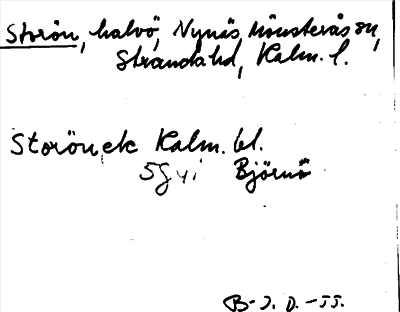 Storön, halvö, Nynäs, Mönsterås sn,
Stranda hd, Kalm. l.
Storön, ek Kalm. bl.
5G yi Björnö
B-J. D. -55.